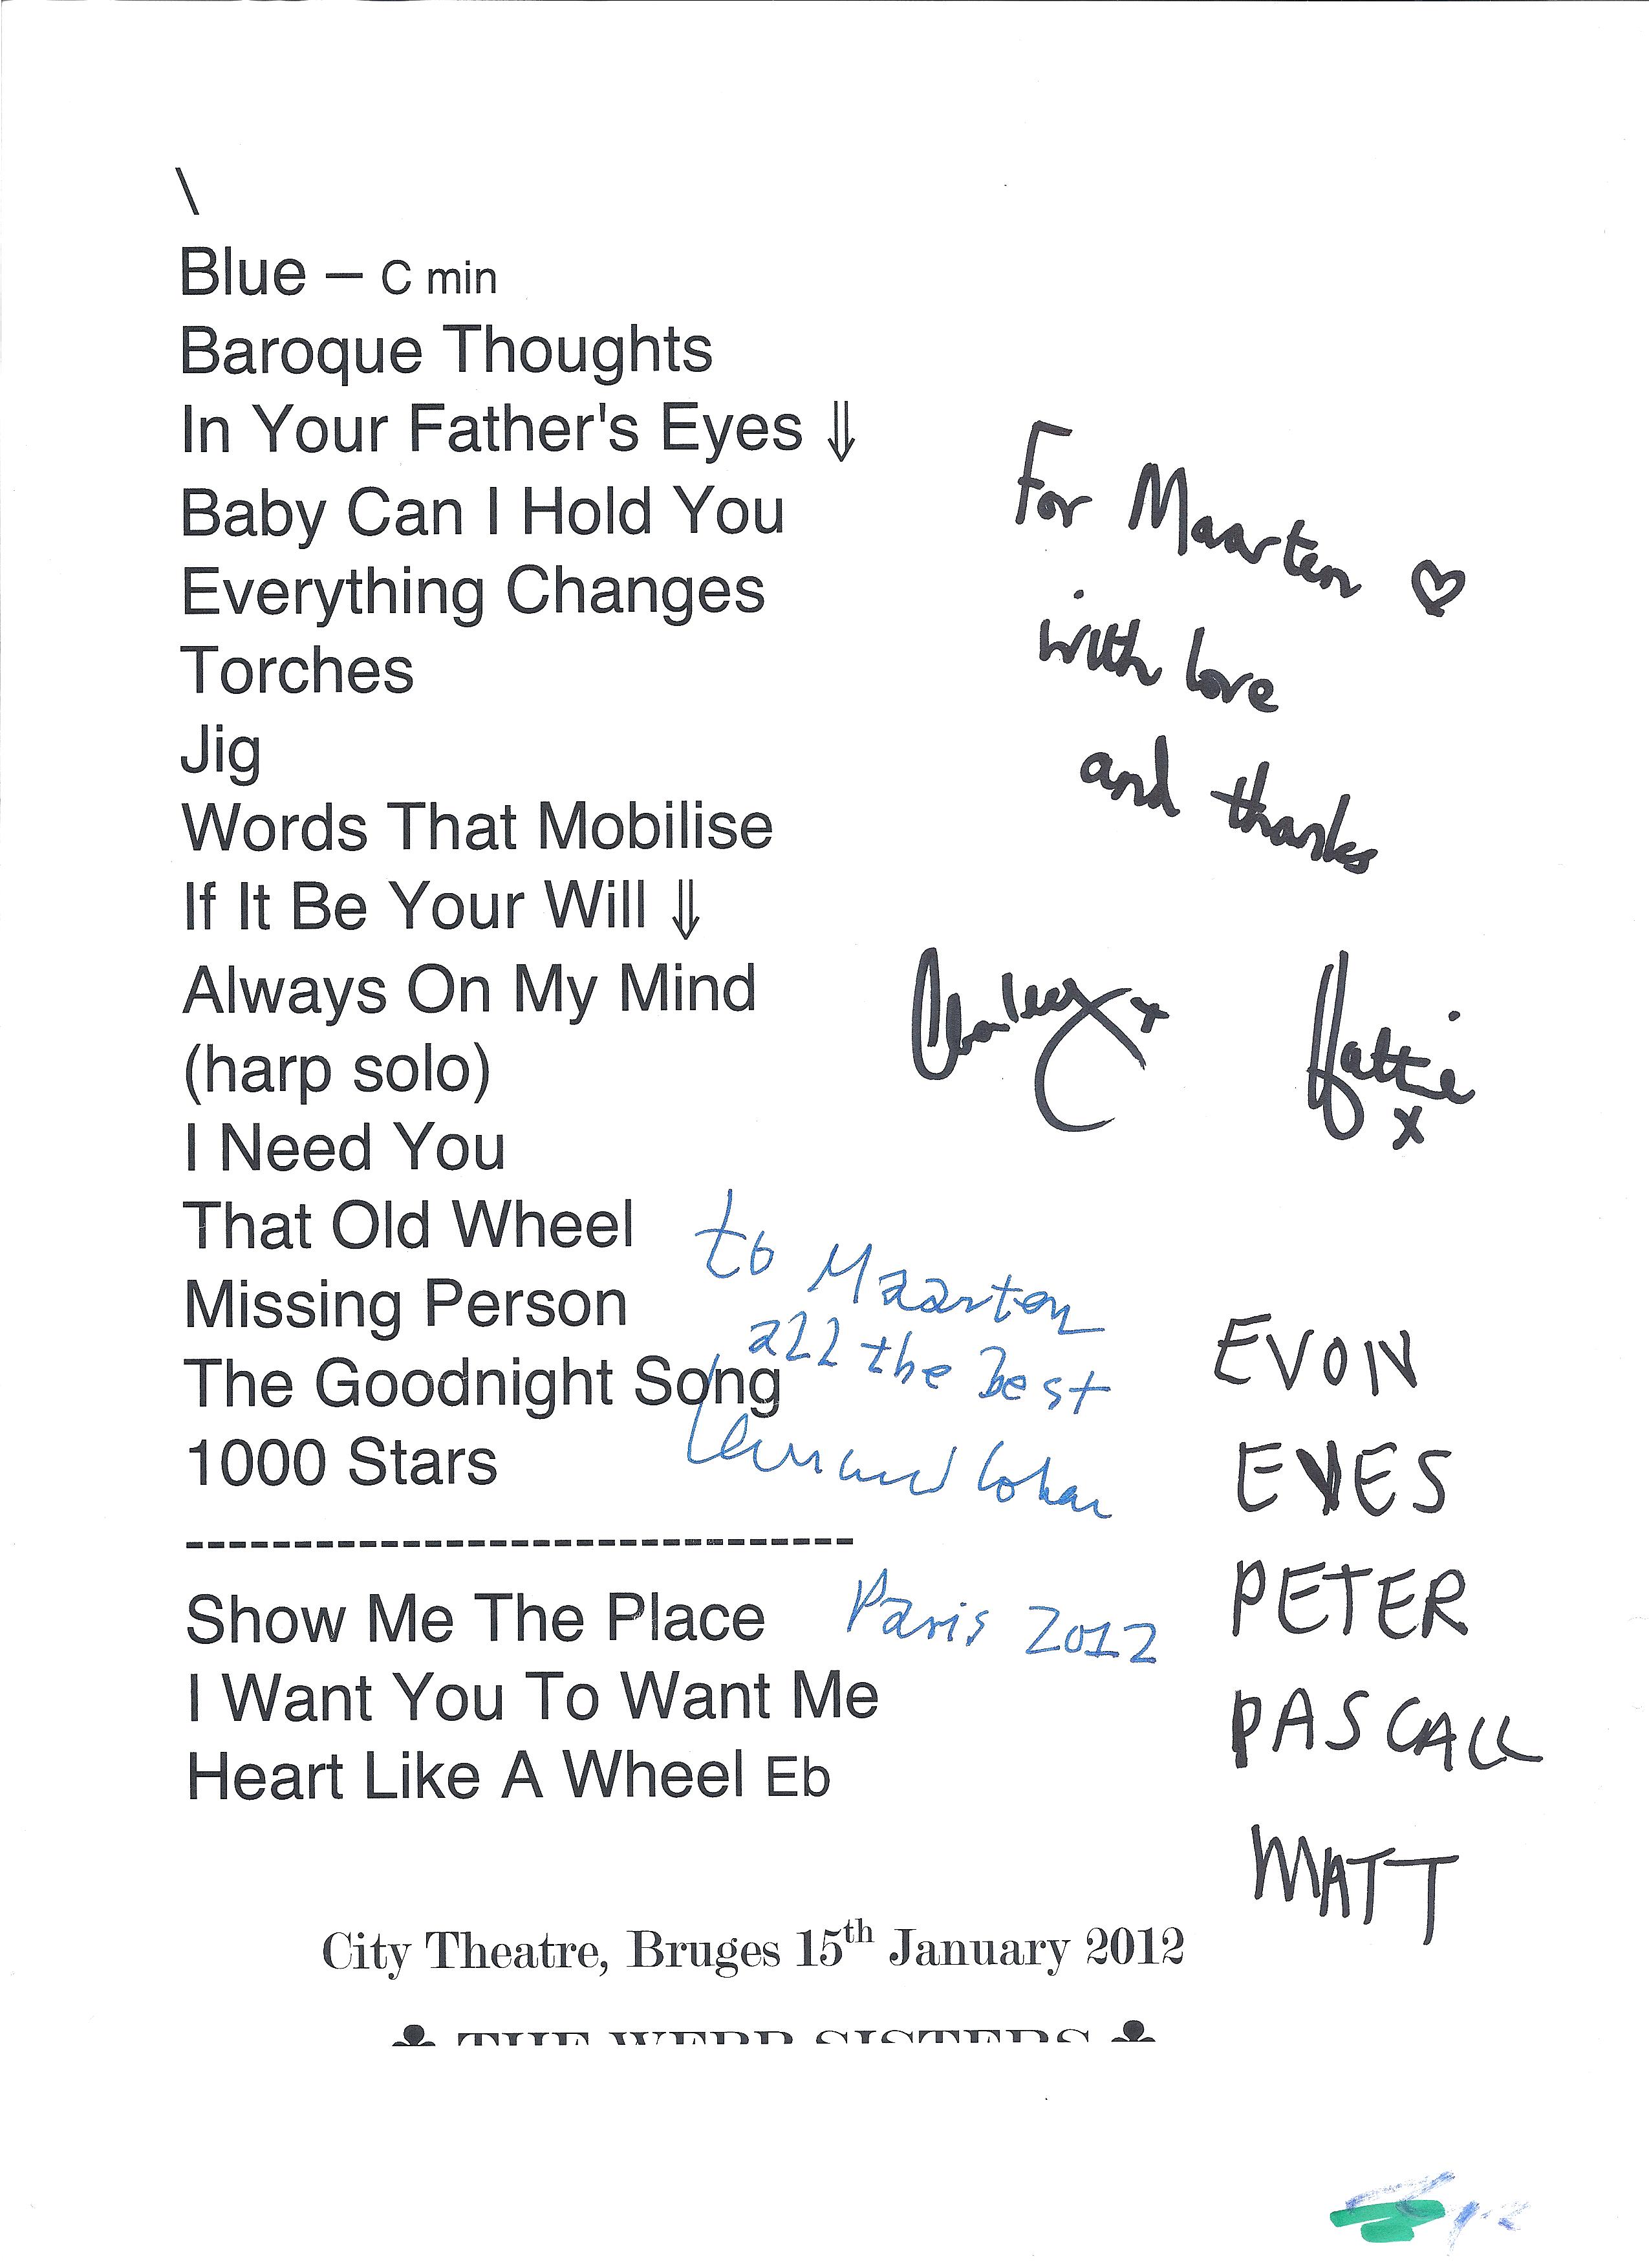 \
Blue – C min
Baroque Thoughts
In Your Father's Eyes ⇓
Baby Can I Hold You
Everything Changes
Torches
Jig
Words That Mobilise
If It Be Your Will ⇓
Always On My Mind
(harp solo)
I Need You
That Old Wheel
Missing Person
The Goodnight Song
1000 Stars
-------------------------------
Show Me The Place
I Want You To Want Me
Heart Like A Wheel Eb
For Maarten ♡
with love
and thanks
Charley x
Hattie
x
to Maarten
all the best
Leonard Cohen
Paris 2012
EVON
EVES
PETER
PASCALL
MATT
City Theatre, Bruges 15th January 2012
THE WEBB SISTERS